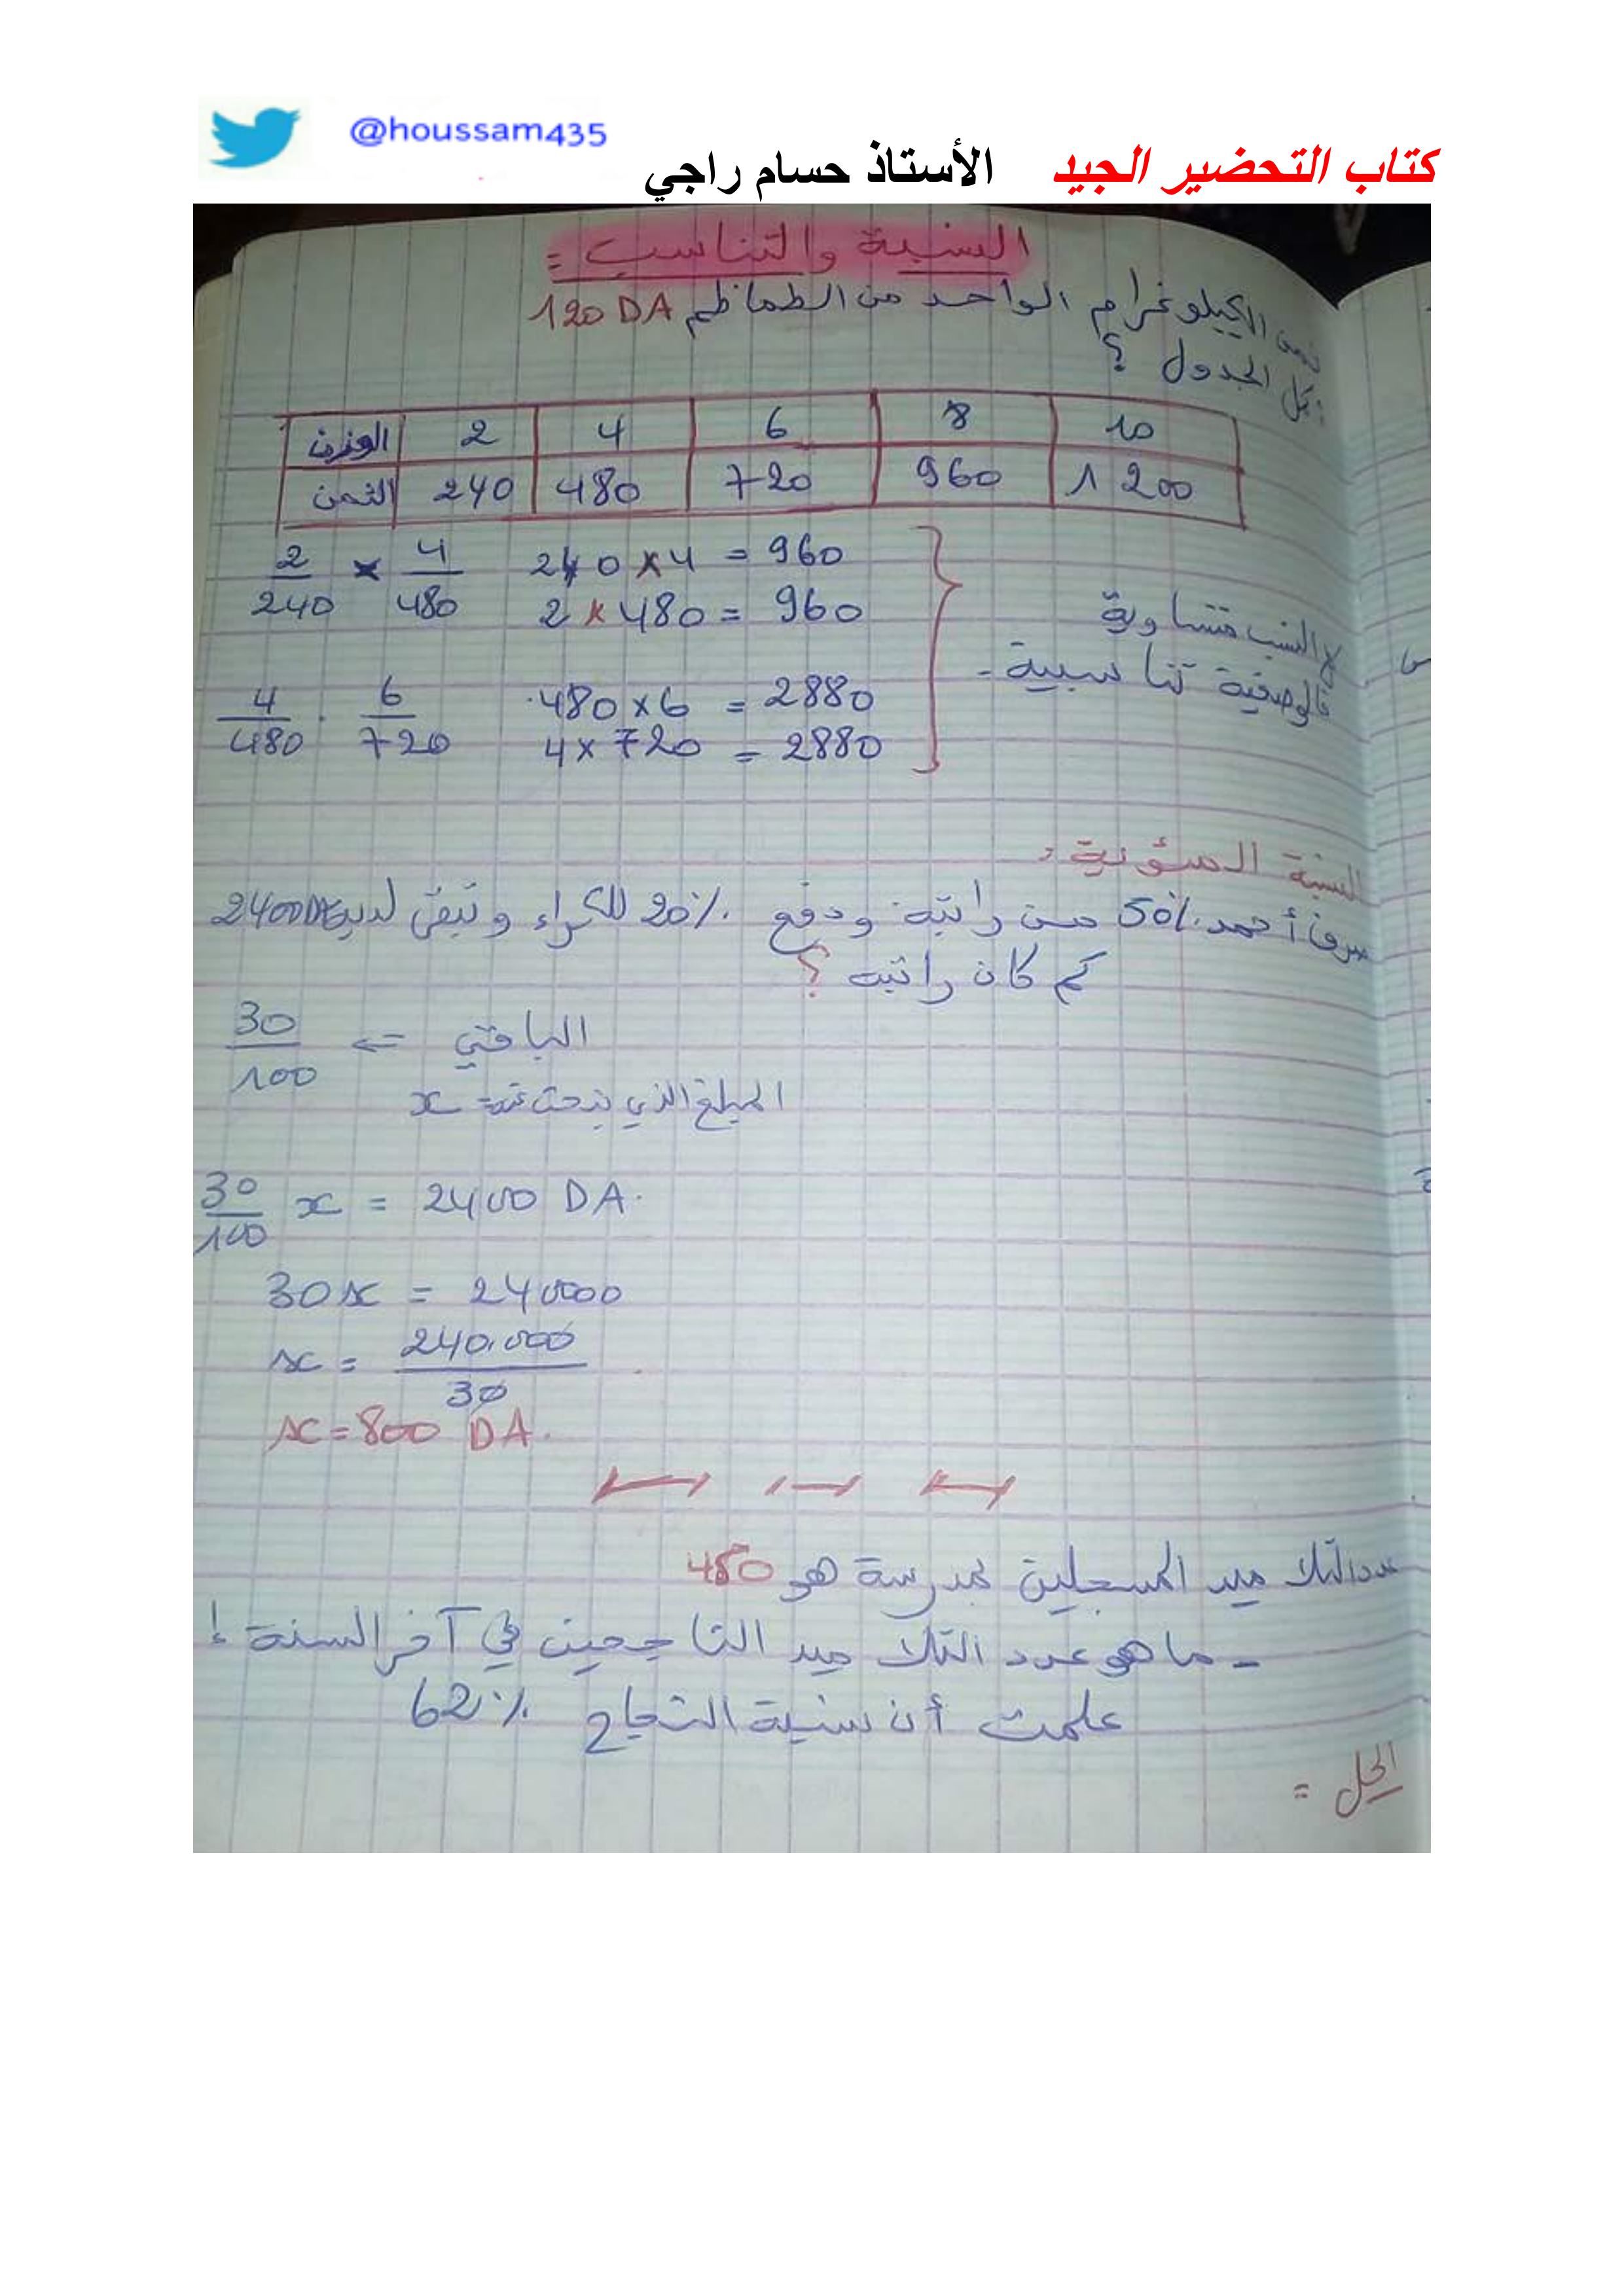 @houssam435
كتاب التحضير الجيد الأستاذ حسام راجي
النسبة والتناسب =
ثمن الكيلوغرام الواحد من الطماطم 120 DA
أكمل الجدول ؟
الوزن 2 4 6 8 10
الثمن 240 480 720 960 1 200
2/240 × 4/480 240 × 4 = 960
2 × 480 = 960
النسب متساوية
فالوضعية تناسبية -
4/480 . 6/720 480 × 6 = 2880
4 × 720 = 2880
النسبة المئوية :
صرف أحمد 50% من راتبه ودفع 20% للكراء وتبقى لديه 2400DA
كم كان راتبه ؟
الباقي ⇐ 30/100
المبلغ الذي نبحث عنه = x
30/100 x = 2400 DA.
30x = 240000
x = 240.000/30
x = 800 DA.
عدد التلاميذ المسجلين بمدرسة هو 450
- ما هو عدد التلاميذ الناجحين في آخر السنة إ
علمت أن نسبة النجاح 62%
الحل =